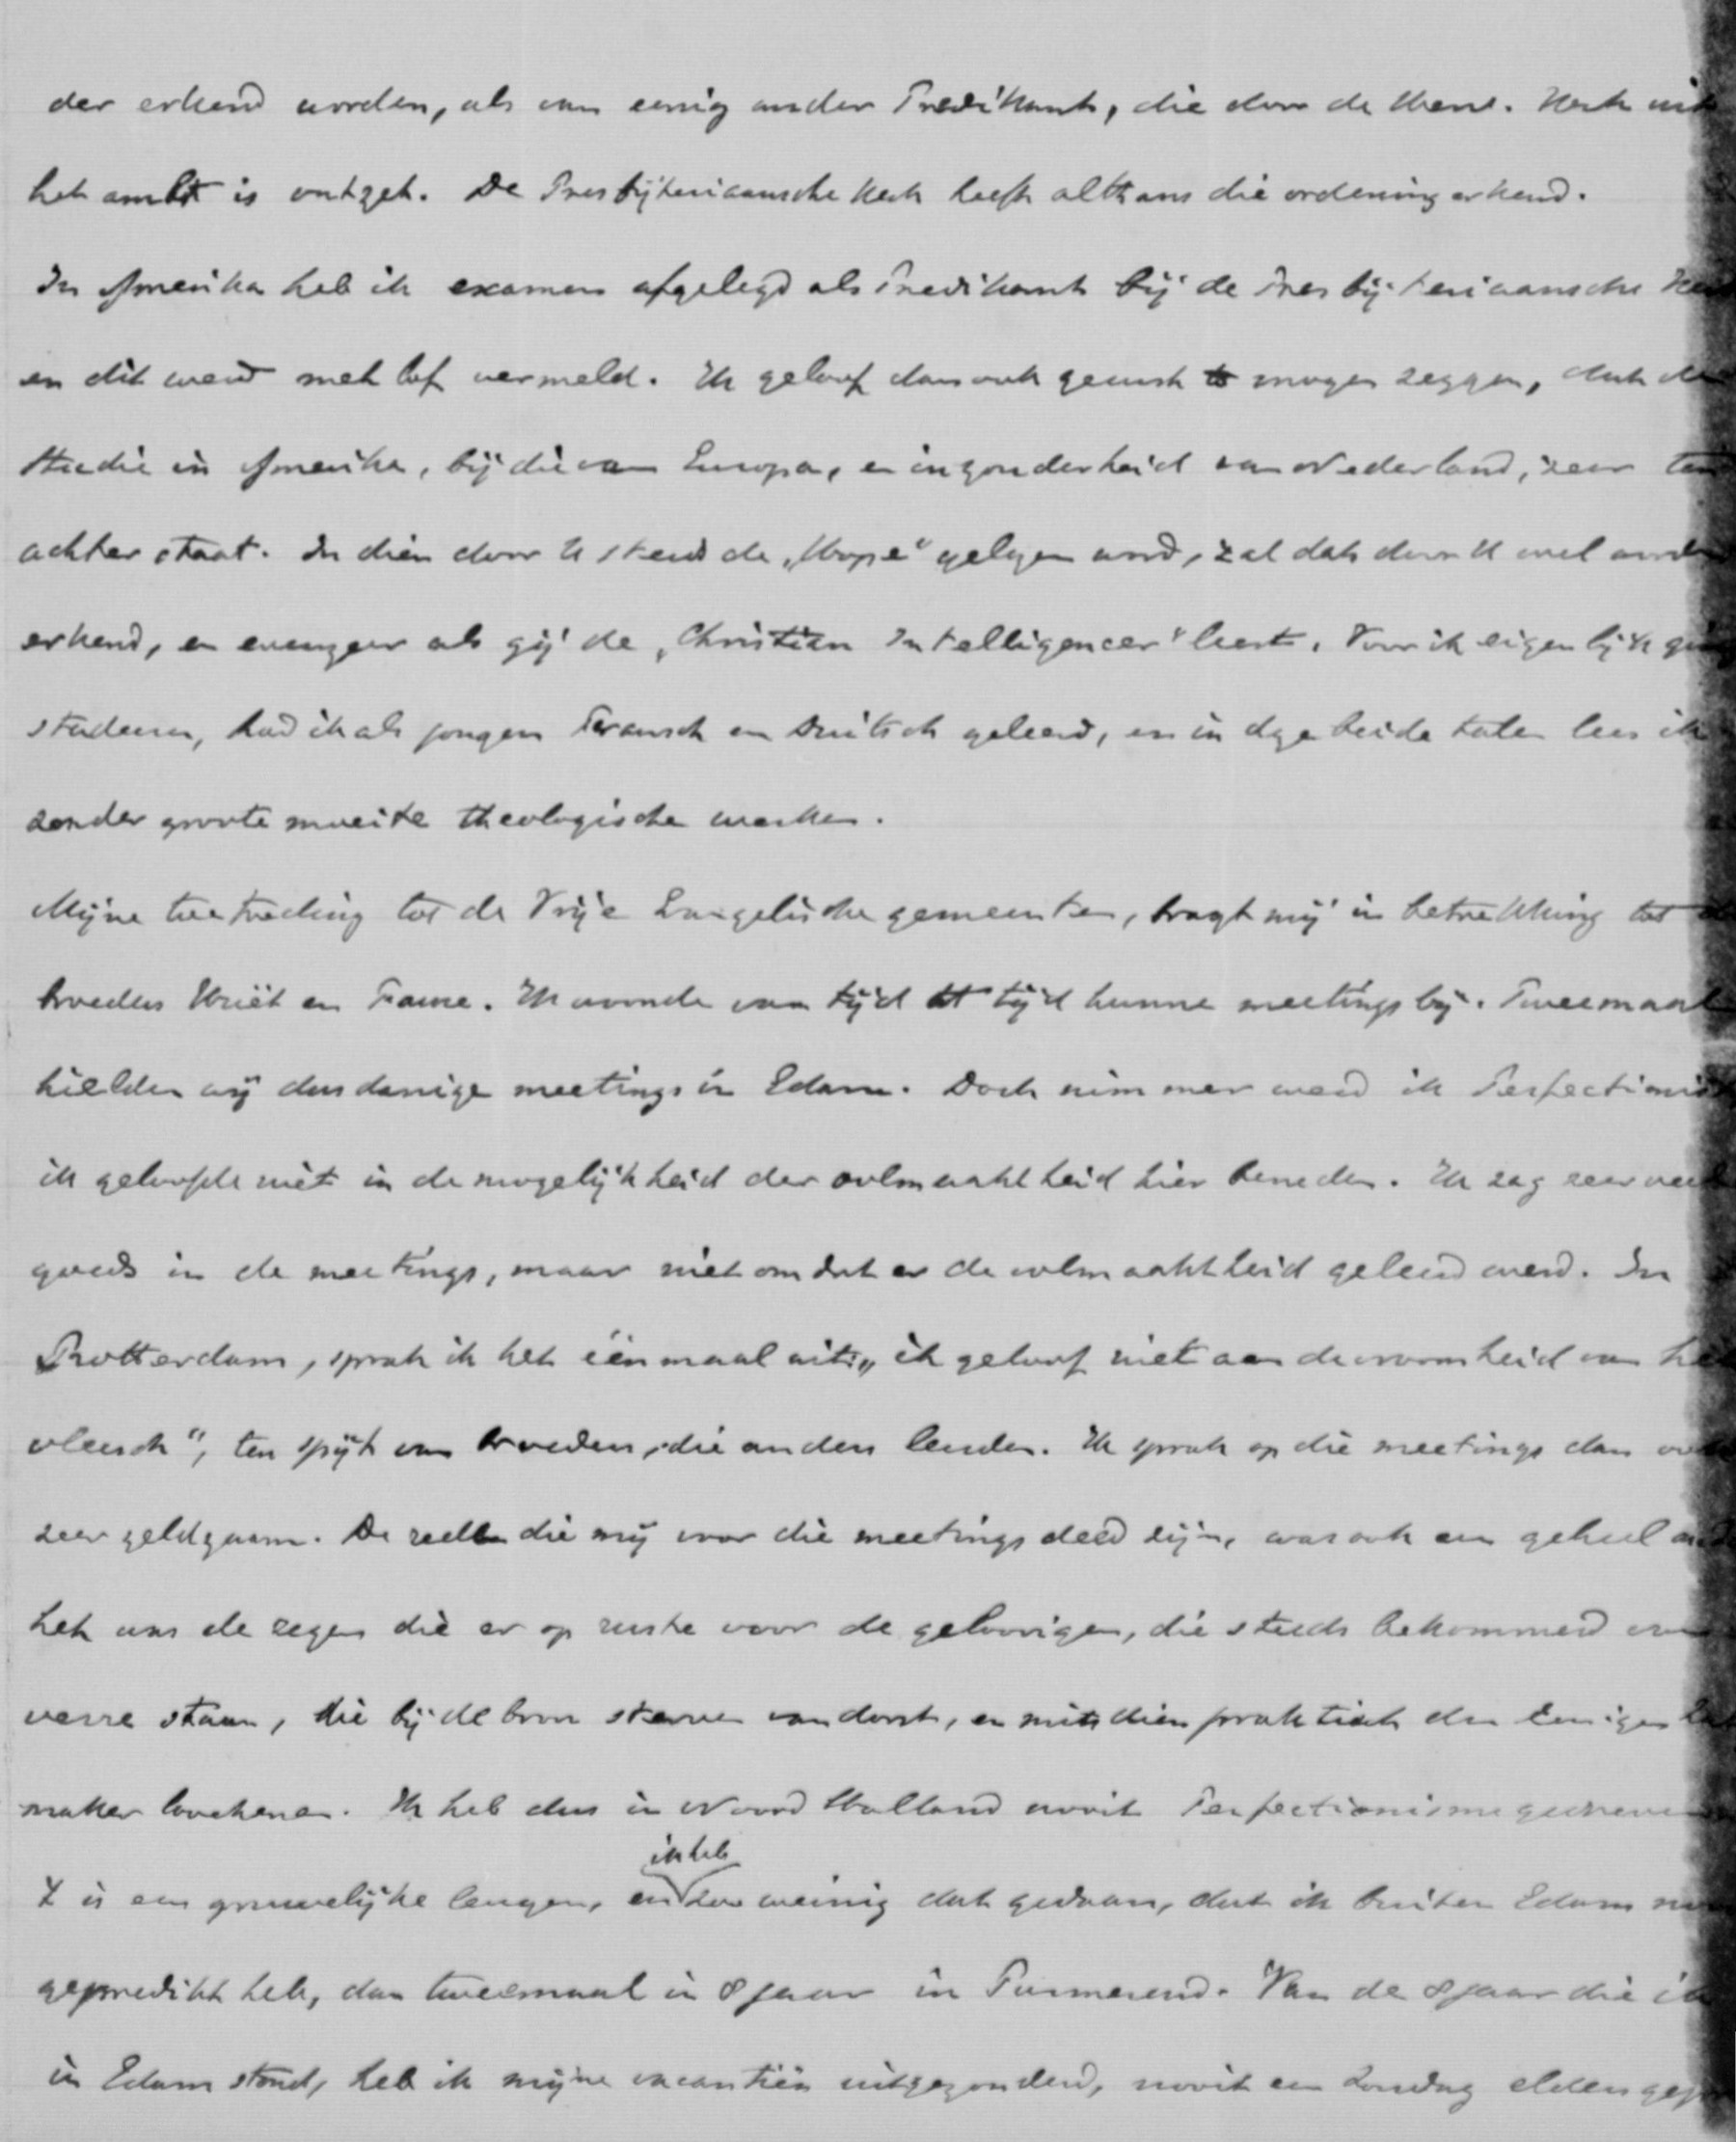 der erkend worden, als van eenig ander Predikant, die door de Herv. Kerk uit
het ambt is ontzet. De Presbijteriaansche Kerk heeft althans die ordening erkend.
In Amerika heb ik examen afgelegd als Predikant bij de Presbijteriaansche
en dit werd met lof vermeld. Ik geloof dan ook gerust te mogen zeggen, dat de
studie in Amerika, bij die van Europa, en inzonderheid van Nederland, zeer ten
achter staat. Indien door U steeds de „Hope" gelezen word, zal dat door U wel
erkend, en evenzeer als gij de „Christian Intelligencer" leest. Voor ik eigenlijk ging
studeeren, had ik als jongen Fransch en Duitsch geleerd, en in deze beide talen lees ik
zonder groote moeite theologische werken.
Mijne toetreding tot de Vrije Evangelische gemeenten, bragt mij in betrekking tot
broeders en . Ik woonde van tijd tot tijd hunne meetings bij. Tweemaal
hielden wij dusdanige meetings in Edam. Doch nimmer werd ik Perfectionist
ik geloofde niet in de mogelijkheid der volmaaktheid hier beneden. Ik zag zeer veel
goeds in de meetings, maar niet omdat er de volmaaktheid geleerd werd. In
Rotterdam, sprak ik het éénmaal uit „ik geloof niet aan de vroomheid van het
vleesch", ten spijt van broeders, die anders leerden. Ik sprak op die meetings dan ook
zeer zeldzaam. De reden die mij voor die meetings deed zijn, was ook een geheel
het was de zegen die er op rustte voor de geloovigen, die steeds bekommerd van
verre staan, die bij de bron sterven van dorst, en mitsdien praktisch den Eenigen
maker loochenen. Ik heb dus in Noord Holland nooit Perfectionisme gedreven
't is een gruwelijke leugen, en ik heb zoo weinig dat gedaan, dat ik buiten Edam
gepredikt heb, dan tweemaal in 8 jaar in Purmerend. Van de 8 jaar die ik
in Edam stond, heb ik mijne vacantiën uitgezonderd, nooit een Zondag elders